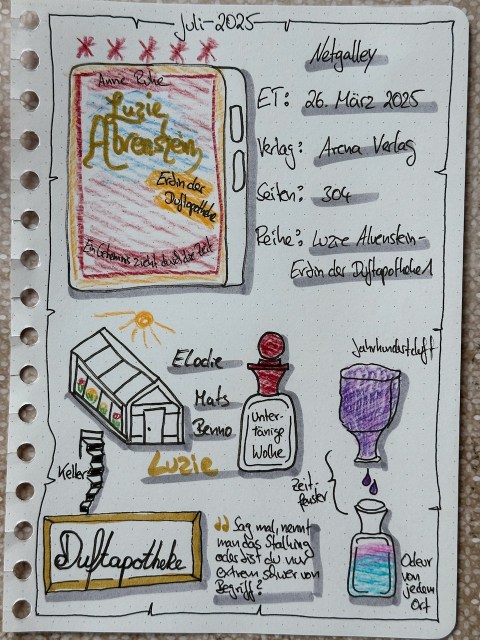 Juli-2025
Anne Ruhe
Luzie
Alvenstein
Erbin der
Duftapotheke
Ein Geheimnis zieht durch die Zeit
Netgalley
ET: 26. März 2025
Verlag: Arena Verlag
Seiten: 304
Reihe: Luzie Alvenstein-
Erbin der Duftapotheke 1
Elodie
Mats
Benno
Luzie
Unter-
tänige
Wolke
Jahrhundertduft
Keller
Zeit-
fenster
Duftapotheke
Sag mal, nennt
man das Stalking
oder bist du nur
extrem schwer von
Begriff?
Odeur
von
jedem
Ort